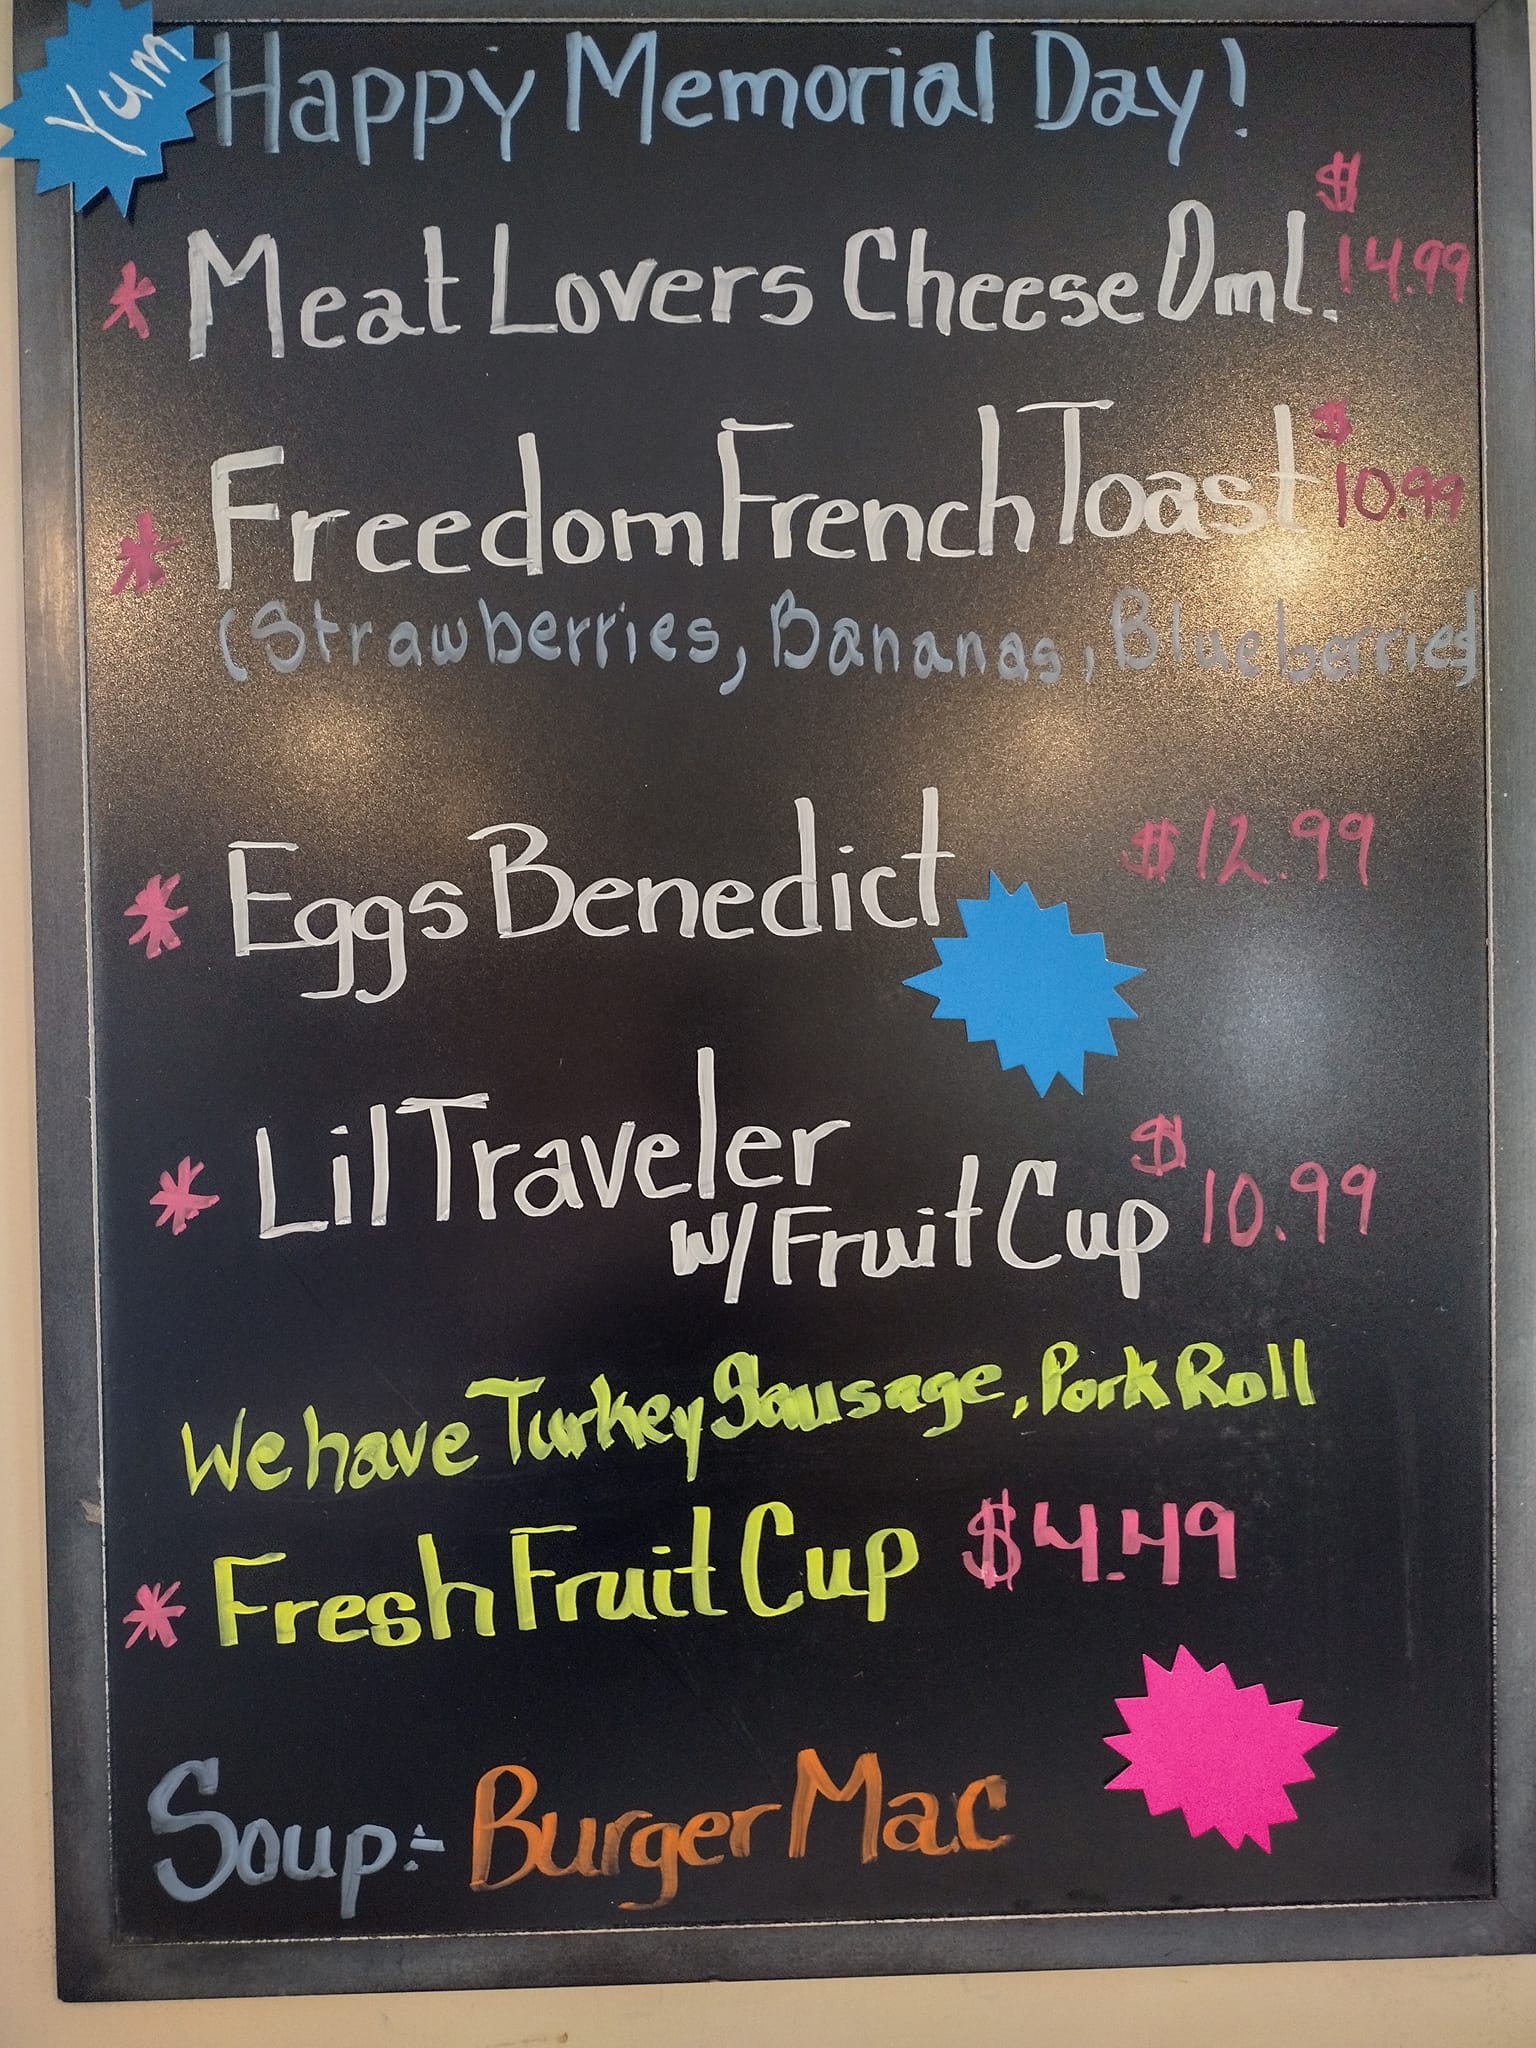 Yum
Happy Memorial Day!
* Meat Lovers Cheese Oml. $14.99
* Freedom French Toast $10.99
(Strawberries, Bananas, Blueberries)
* Eggs Benedict $12.99
* Lil Traveler
w/ Fruit Cup $10.99
We have Turkey Sausage, Pork Roll
* Fresh Fruit Cup $4.49
Soup:- Burger Mac